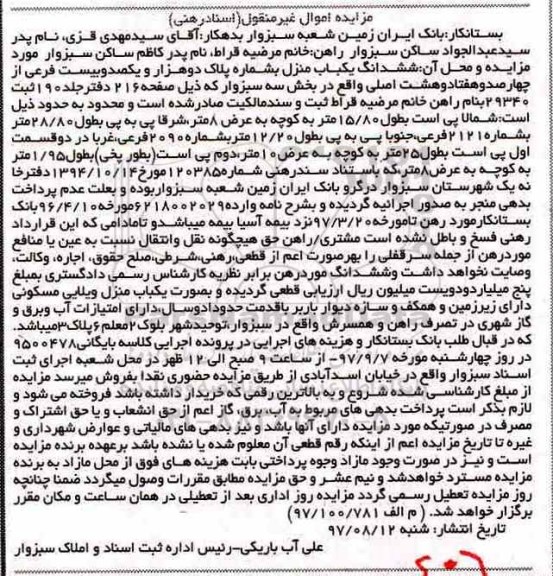 مزایده اموال غیرمنقول(اسنادرهنی)
بستانکار:بانک ایران زمین شعبه سبزوار بدهکار:آقای سیدمهدی قزی، نام پدر
سیدعبدالجواد ساکن سبزوار راهن:خانم مرضیه قراط، نام پدر کاظم ساکن سبزوار مورد
مزایده و محل آن:ششدانگ یکباب منزل بشماره پلاک دوهزار و یکصدوبیست فرعی از
چهارصدوهفتادوهشت اصلی واقع در بخش سه سبزوار که ذیل صفحه۲۱۶ دفترجلد۱۹۰ثبت
۲۹۳۴۰بنام راهن خانم مرضیه قراط ثبت و سندمالکیت صادرشده است و محدود به حدود ذیل
است:شمالا پی است بطول۱۵/۸۰متر به کوچه به عرض ۸متر،شرقا پی به پی بطول۲۸/۸۰متر
بشماره۲۱۲۱فرعی،جنوبا پی به پی بطول۱۲/۲۰متربشماره۲۰۹۰فرعی،غربا در دوقسمت
اول پی است بطول۲۵متر به کوچه به عرض۱۰متر،دوم پی است(بطور پخی)بطول۱/۹۵متر
به کوچه به عرض۸مترکه باستناد سندرهنی شماره۱۲۰۳۸۵مورخ۱۳۹۴/۱۰/۱۴دفترخا
نه یک شهرستان سبزوار درگرو بانک ایران زمین شعبه سبزواربوده و بعلت عدم پرداخت
بدهی منجر به صدور اجرائیه گردیده و بشرح نامه وارده۶۲۱۸۰۰۲۰۲۹مورخه۹۶/۴/۱۰بانک
بستانکارمورد رهن تامورخه۹۷/۳/۲۰نزد بیمه آسیا بیمه میباشدو تامادامی که این قرارداد
رهنی فسخ و باطل نشده است مشتری/راهن حق هیچگونه نقل وانتقال نسبت به عین یا منافع
موردرهن از جمله سرقفلی را بهرصورت اعم از قطعی،رهنی،شرطی،صلح حقوق، اجاره، وکالت،
وصایت نخواهد داشت وششدانگ موردرهن برابر نظریه کارشناس رسمی دادگستری بمبلغ
پنج میلیاردودویست میلیون ریال ارزیابی قطعی گردیده و بصورت یکباب منزل ویلایی مسکونی
دارای زیرزمین و همکف وسازه دیوار باربر باقدمت حدوداد‌وسال دارای امتیازات آب وبرق و
گاز شهری در تصرف راهن و همسرش واقع در سبزوار،توحیدشهر بلوک۲معلم۶پلاک۳میباشد.
که در قبال طلب بانک بستانکار و هزینه های اجرایی در پرونده اجرایی کلاسه بایگانی۹۵۰۰۴۷۸
در روز چهارشنبه مورخه ۹۷/۹/۷- از ساعت ۹ صبح الی ۱۲ ظهر در محل شعبه اجرای ثبت
اسناد سبزوار واقع در خیابان اسدآبادی از طریق مزایده حضوری نقدا بفروش میرسد مزایده
از مبلغ کارشناسی شده شروع و به بالاترین رقمی که خریدار داشته باشد فروخته می شود و
لازم بذکر است پرداخت بدهی های مربوط به آب،برق، گاز اعم از حق انشعاب و یا حق اشتراک و
مصرف در صورتیکه مورد مزایده دارای آنها باشد و نیز بدهی های مالیاتی و عوارض شهرداری و
غیره تا تاریخ مزایده اعم از اینکه رقم قطعی آن معلوم شده یا نشده باشد برعهده برنده مزایده
است و نیز در صورت وجود مازاد وجوه پرداختی بابت هزینه های فوق از محل مازاد به برنده
مزایده مسترد خواهدشد و نیم عشر و حق مزایده مطابق مقررات وصول میگردد ضمنا چنانچه
روز مزایده تعطیل رسمی گردد مزایده روز اداری بعد از تعطیلی در همان ساعت و مکان مقرر
برگزار خواهد شد. (م الف ۹۷/۱۰۰/۷۸۱)
تاریخ انتشار: شنبه ۹۷/۰۸/۱۲
علی آب باریکی-رئیس اداره ثبت اسناد و املاک سبزوار